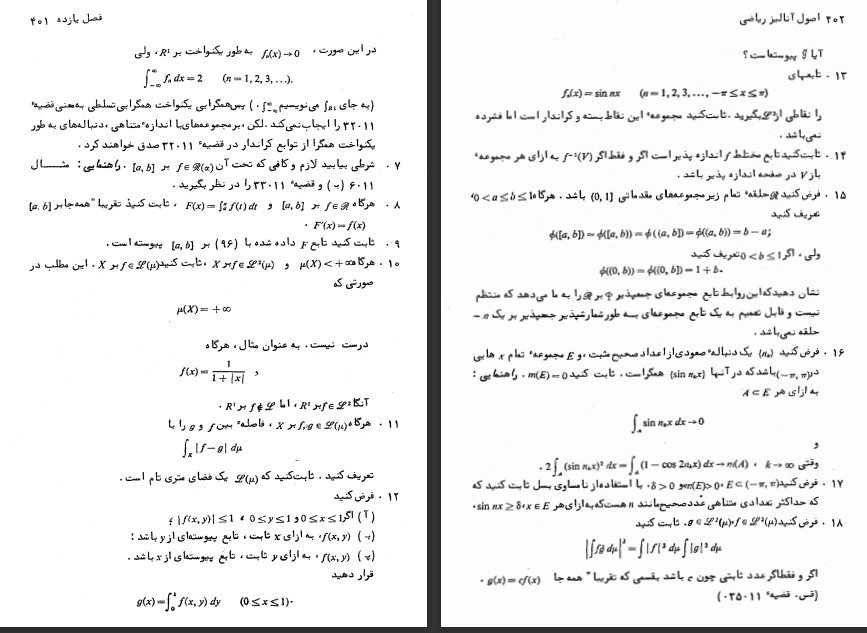 فصل یازده ۴۰۱
در این صورت، fₙ(x)→0 به طور یکنواخت بر R¹، ولی
∫_{-∞}^{∞} fₙ dx = 2 (n = 1, 2, 3, ...).
(به جای ∫_{R¹} می‌نویسیم ∫_{-∞}^{∞}.) پس همگرایی یکنواخت همگرایی تسلطی به معنی قضیهٔ
۳۲۰۱۱ را ایجاب نمی‌کند. لکن، بر مجموعه‌های با اندازهٔ متناهی، دنباله‌های به طور
یکنواخت همگرا از توابع کراندار در قضیهٔ ۳۲۰۱۱ صدق خواهند کرد.
۷. شرطی بیابید لازم و کافی که تحت آن f∈ℛ(α) بر [a, b]. راهنمایی: مثال
۶۰۱۱ (ب) و قضیهٔ ۳۳۰۱۱ را در نظر بگیرید.
۸. هرگاه f∈ℛ بر [a, b] و F(x) = ∫_a^x f(t) dt، ثابت کنید تقریباً همه جا بر [a, b]
F'(x) = f(x).
۹. ثابت کنید تابع F داده شده با (۹۶) بر [a, b] پیوسته است.
۱۰. هرگاه μ(X) < +∞ و f∈ℒ²(μ) بر X، ثابت کنید f∈ℒ(μ) بر X. این مطلب در
صورتی که
μ(X) = +∞
درست نیست. به عنوان مثال، هرگاه
f(x) = 1/(1 + |x|) ,
آنگاه f∈ℒ² بر R¹، اما f∉ℒ بر R¹.
۱۱. هرگاه f, g∈ℒ(μ) بر X، فاصلهٔ بین f و g را با
∫_X |f − g| dμ
تعریف کنید. ثابت کنید که ℒ(μ) یک فضای متری تام است.
۱۲. فرض کنید
(آ) اگر 0≤x≤1 و 0≤y≤1، |f(x, y)| ≤ 1؛
(ب) f(x, y)، به ازای x ثابت، تابع پیوسته‌ای از y باشد؛
(پ) f(x, y)، به ازای y ثابت، تابع پیوسته‌ای از x باشد.
قرار دهید
g(x) = ∫_0^1 f(x, y) dy (0 ≤ x ≤ 1).
۴۰۲ اصول آنالیز ریاضی
آیا g پیوسته است؟
۱۳. تابعهای
fₙ(x) = sin nx (n = 1, 2, 3, ..., −π ≤ x ≤ π)
را نقاطی از ℒ² بگیرید. ثابت کنید مجموعهٔ این نقاط بسته و کراندار است اما فشرده
نمی‌باشد.
۱۴. ثابت کنید تابع مختلط f اندازه پذیر است اگر و فقط اگر f⁻¹(V) به ازای هر مجموعهٔ
باز V در صفحه اندازه پذیر باشد.
۱۵. فرض کنید ℛ حلقهٔ تمام زیر مجموعه‌های مقدماتی (0, 1] باشد. هرگاه 0<a≤b≤1،
تعریف کنید
φ([a, b]) = φ([a, b)) = φ((a, b]) = φ((a, b)) = b − a;
ولی، اگر 0<b≤1 تعریف کنید
φ((0, b)) = φ((0, b]) = 1 + b.
نشان دهید که این روابط تابع مجموعه‌ای جمعپذیر φ بر ℛ را به ما می‌دهد که منتظم
نیست و قابل تعمیم به یک تابع مجموعه‌ای به طور شمارشپذیر جمعپذیر بر یک σ-
حلقه نمی‌باشد.
۱۶. فرض کنید {nₖ} یک دنبالهٔ صعودی از اعداد صحیح مثبت، و E مجموعهٔ تمام x هایی
در (−π, π) باشد که در آنها {sin nₖx} همگراست. ثابت کنید m(E)=0. راهنمایی:
به ازای هر A⊂E
∫_A sin nₖx dx→0
و
وقتی k→∞، 2∫_A (sin nₖx)² dx = ∫_A (1 − cos 2nₖx) dx→m(A).
۱۷. فرض کنید E⊂(−π, π)، m(E)>0، و δ>0. با استفاده از نامساوی بسل ثابت کنید که
که حداکثر تعدادی متناهی عدد صحیح مانند n هست که به ازای هر x∈E، sin nx≥δ.
۱۸. فرض کنید f∈ℒ²(μ)، g∈ℒ²(μ). ثابت کنید
|∫fḡ dμ|² = ∫|f|² dμ ∫|g|² dμ
اگر و فقط اگر عدد ثابتی چون c باشد بقسمی که تقریباً همه جا g(x) = cf(x).
(قس. قضیهٔ ۳۵۰۱۱.)